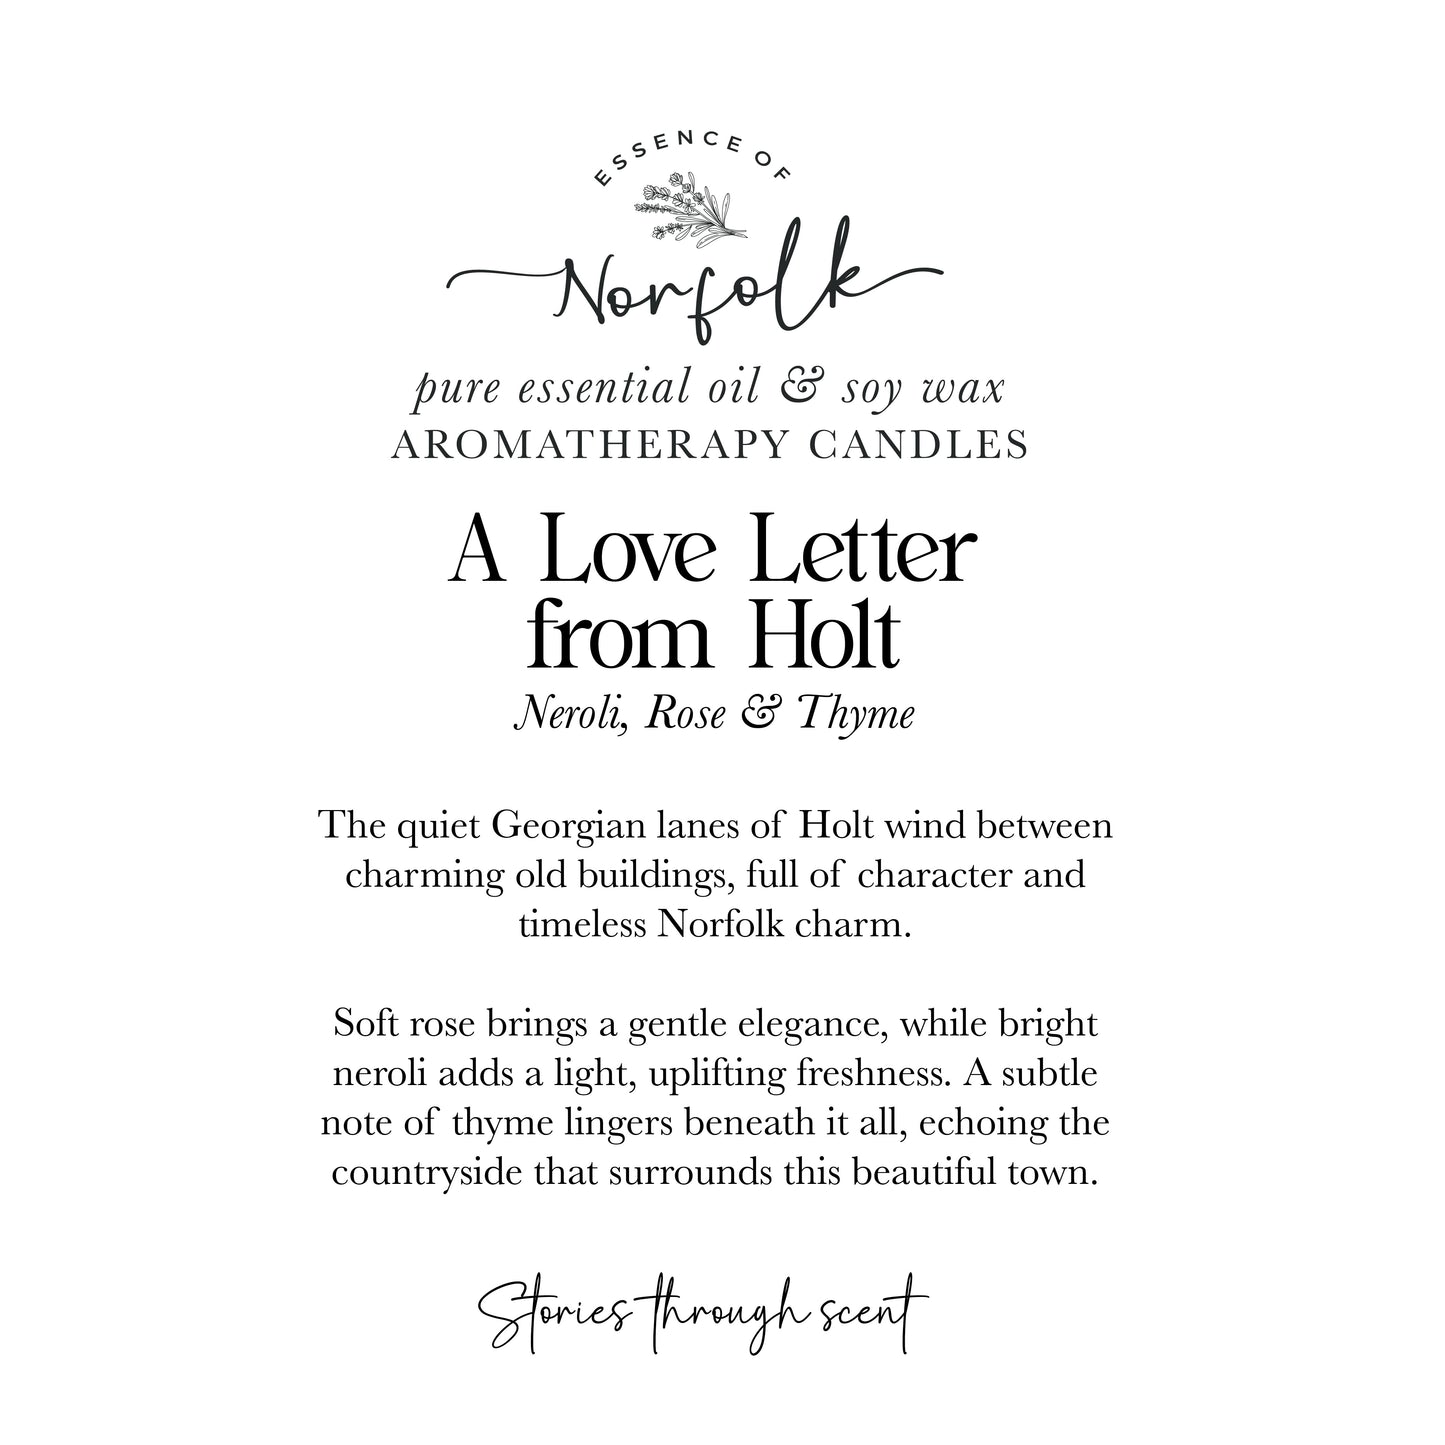 ESSENCE OF
Norfolk
pure essential oil & soy wax
AROMATHERAPY CANDLES
A Love Letter
from Holt
Neroli, Rose & Thyme
The quiet Georgian lanes of Holt wind between
charming old buildings, full of character and
timeless Norfolk charm.
Soft rose brings a gentle elegance, while bright
neroli adds a light, uplifting freshness. A subtle
note of thyme lingers beneath it all, echoing the
countryside that surrounds this beautiful town.
Stories through scent